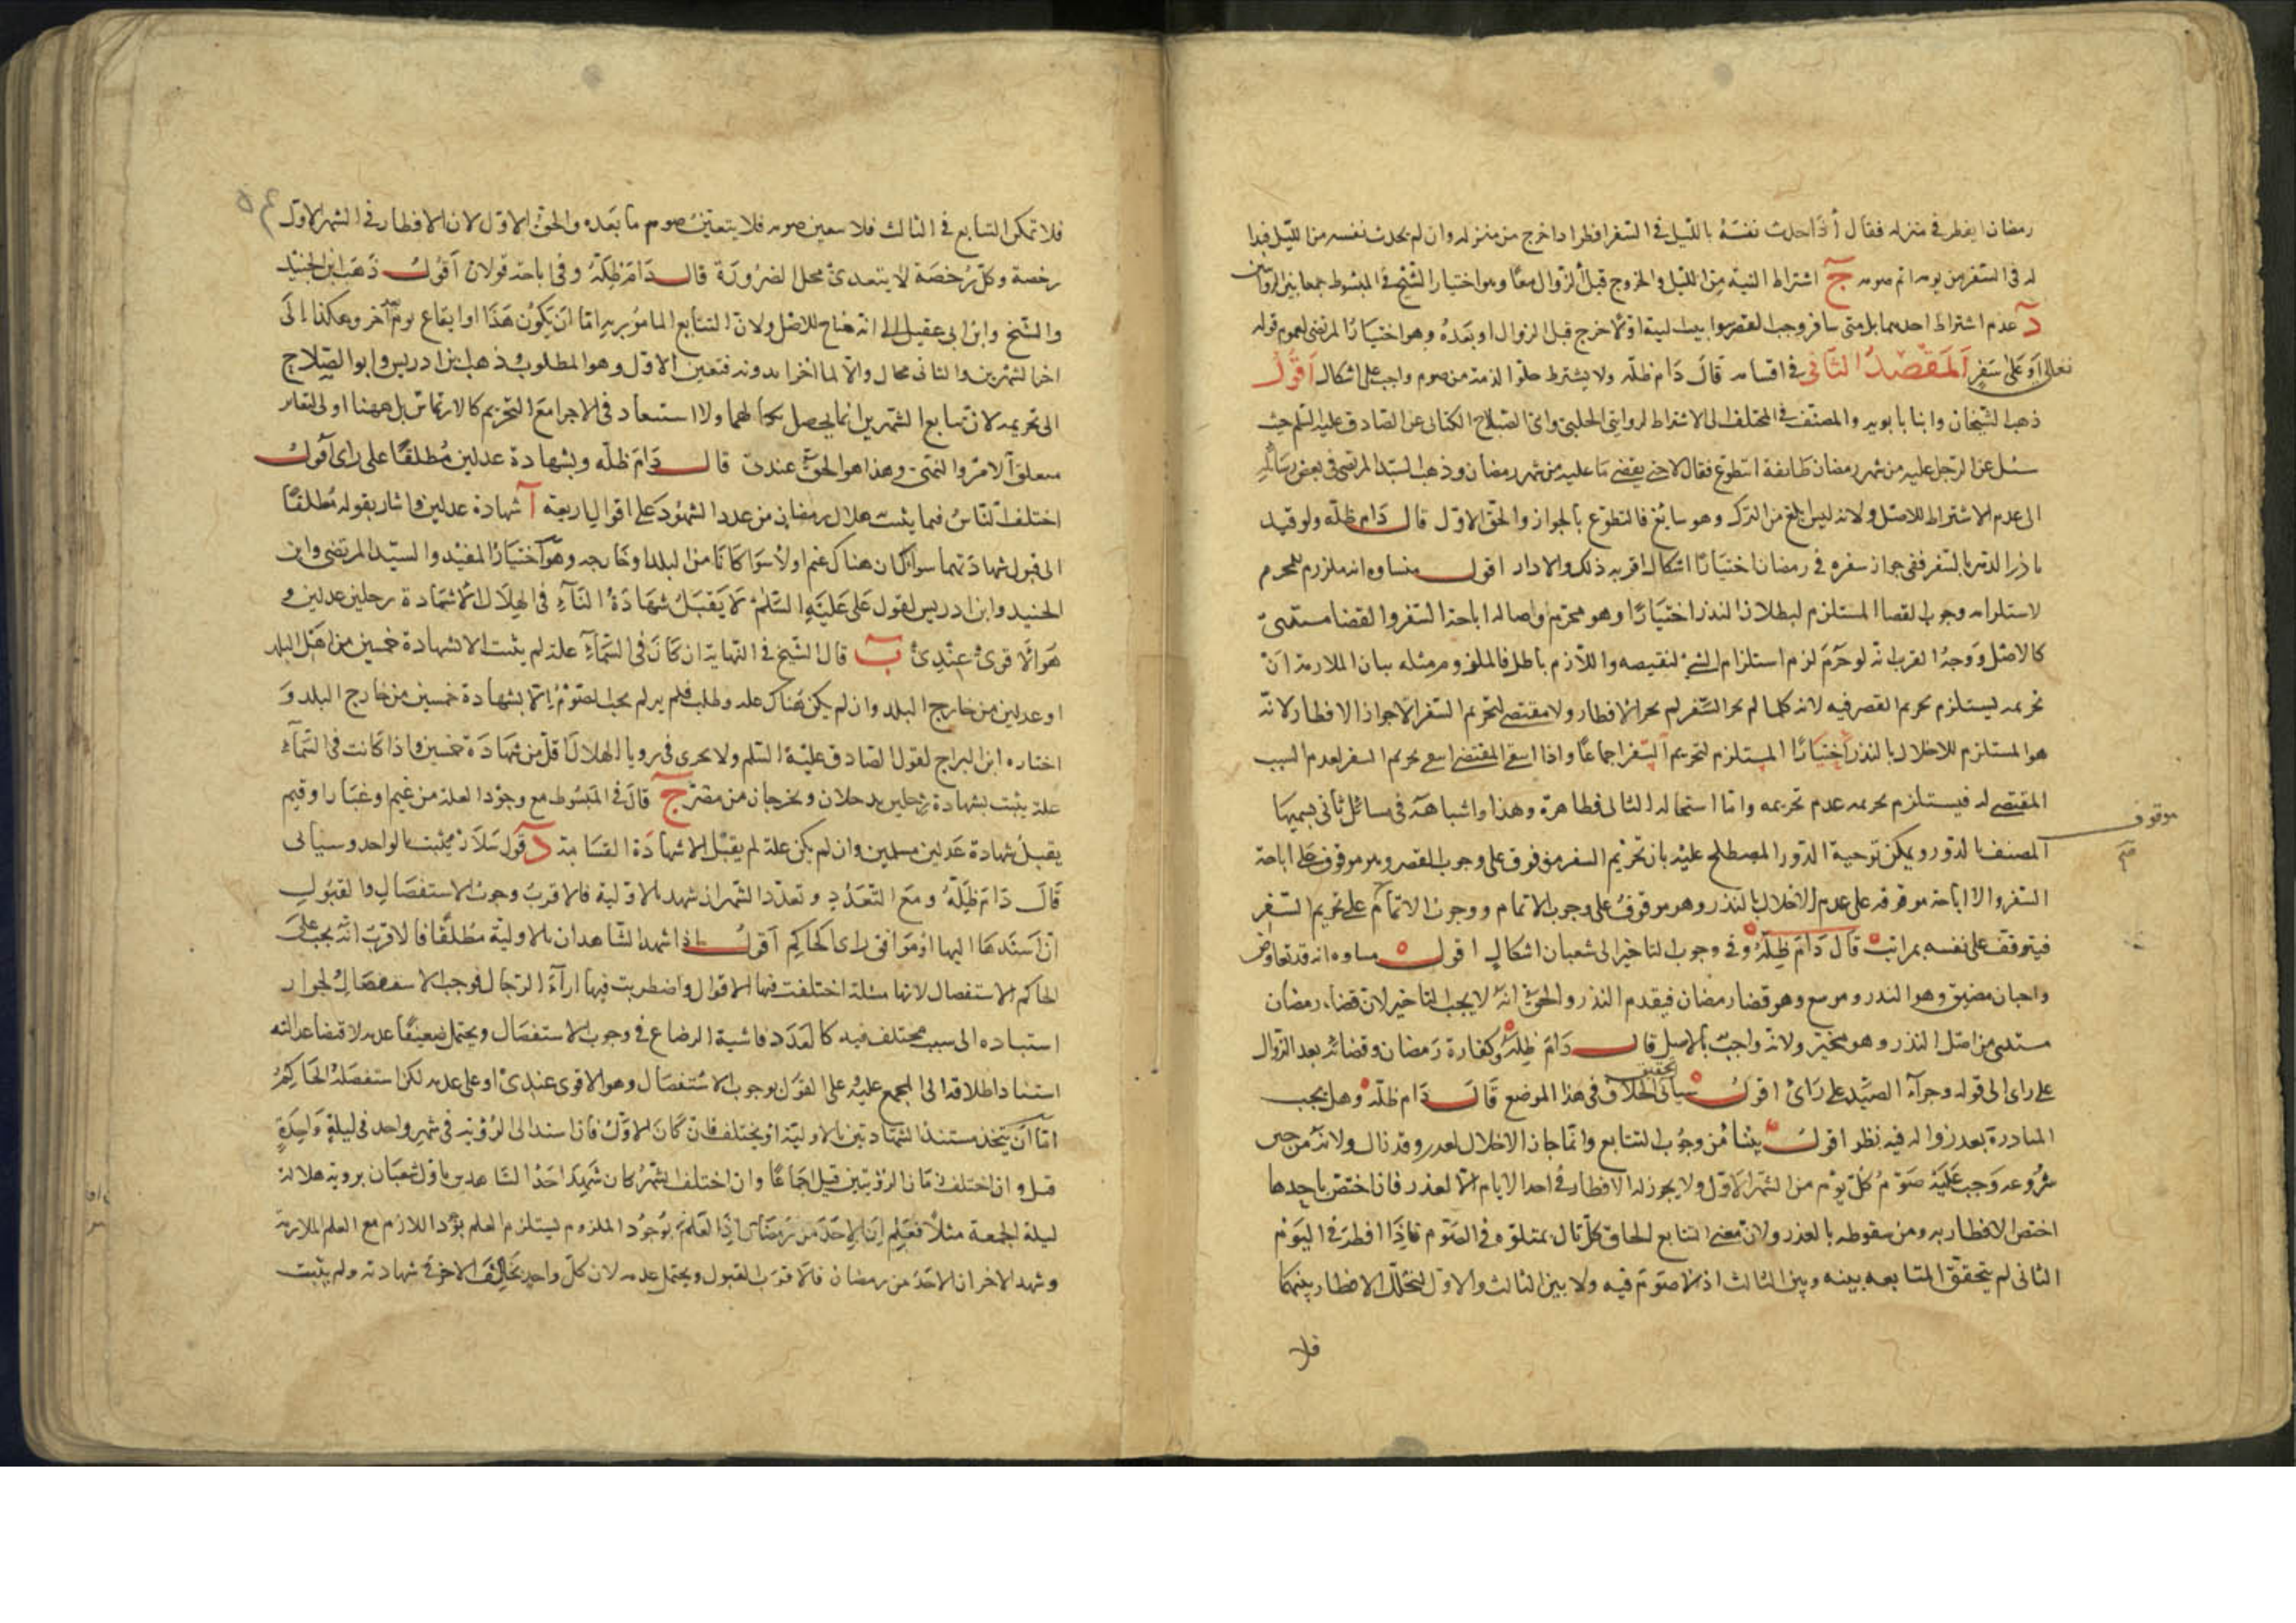 رمضان ايفطر في منزله فقال اذا حدث نفسه بالليل في السفر افطر اذا خرج من منزله وان لم يحدث نفسه من الليل فبدا
له في السفر من يومه اتم صومه ج اشتراط النية من الليل والخروج قبل الزوال معا وهو اختيار الشيخ في المبسوط جمعا بين
د عدم اشتراط احدهما بل متى سافر وجب القصر سوا بيت لنية او لا خرج قبل الزوال او بعده وهو اختيار المرتضى لعموم قوله
تعالى او على سفر المقصد الثاني في اقسامه قال دام ظله ولا يشترط خلو الذمة من صوم واجب على اشكال اقول
ذهب الشيخان وابنا بابويه والمصنف في المختلف الى الاشتراط لروايتي الحلبي وابي الصباح الكناني عن الصادق عليه السلم حيث
سئل عن الرجل عليه من شهر رمضان طايفة اتطوع فقال لا حتى يقضي ما عليه من شهر رمضان وذهب السيد المرتضى في بعض رسائله
الى عدم الاشتراط للاصل ولانه ليس ابلغ من الترك وهو سايغ فالتطوع بالجواز والحق الاول قال دام ظله ولو قيد
ناذر الدهر بالسفر ففي جواز سفره في رمضان اختيارا اشكال اقربه ذلك والا دار اقول منشاوه انه ملزوم للمحرم
لاستلزامه وجوب القضا المستلزم لبطلان النذر اختيارا وهو محرم واصالة اباحة السفر والقضا مستثنى
كالاصل ووجه القرب انه لو حرم لزم استلزام الشي لنقيضه واللازم باطل فالملزوم مثله بيان الملازمة ان
تحريمه ليستلزم تحريم القصر فيه لانه كلما لم يجز السفر لم يجز الافطار ولا مقتضي لتحريم السفر الا جواز الافطار لانه
هو المستلزم للاخلال بالنذر اختيارا المستلزم لتحريم السفر اجماعا واذا انتفى المقتضي انتفى تحريم السفر لعدم السبب
المقتضي له فيستلزم تحريمه عدم تحريمه واما استحالة التالي فظاهرة وهذا واشباهه في مسائل ثاني يسميها
موقوف
المصنف بالدور ويمكن توجيه الدور المصطلح عليه بان تحريم السفر موقوف على وجوب القصر وهو موقوف على اباحة
السفر والا اباحته موقوفة على عدم الاخلال بالنذر وهو موقوف على وجوب الاتمام ووجوب الاتمام على تحريم السفر
فيتوقف على نفسه بمراتب قال دام ظله وفي وجوب التاخير الى شعبان اشكال اقول منشاوه انه قد تعارض
واجبان مضيق وهو النذر وموسع وهو قضا رمضان فيقدم النذر والحق انه لا يجب التاخير لان قضاء رمضان
مستثنى من اصل النذر وهو مخير ولانه واجب بالاصل قال دام ظله وكفارة رمضان وقضائه بعد الزوال
على راي الى قوله وجزاء الصيد على راي اقول سياتي تحقيق الخلاف في هذا الموضع قال دام ظله وهل يجب
المبادرة بعد زواله فيه نظر اقول ينشا من وجوب التتابع وانما جاز الاخلال لعذر وقد زال ولانه من حين
شروعه وجب عليه صوم كل يوم من الشهر الاول ولا يجوز له الافطار في احد الايام الا لعذر فاذا اختص باحدها
اختص الافطار به ومن سقوطه بالعذر ولان معنى التتابع الحاق كل تال بمتلوه في الصوم فاذا افطر في اليوم
الثاني لم يتحقق المتابعة بينه وبين الثالث اذ لا صوم فيه ولا بين الثالث والاول لتخلل الافطار بينهما
فلا
فلا تمكن التتابع في الثالث فلا يتعين صومه فلا يتعين صوم ما بعده والحق الاول لان الافطار في الشهر الاول
رخصة وكل رخصة لا يتعدى محل الضرورة قال دام ظله وفي اباحته قولان اقول ذهب ابن الجنيد
والشيخ وابن ابي عقيل الى انه مباح للاصل ولان التتابع المامور به اما ان يكون هذا او ايقاع يوم بعد آخر وهكذا الى
اخر الشهرين والثاني محال والا لما اجزا بدونه فتعين الاول وهو المطلوب وذهب ابن ادريس وابو الصلاح
الى تحريمه لان تتابع الشهرين انما يحصل باكمالهما ولا استبعاد في الاجزا مع التحريم كالارتماس بل ههنا اولى لتغاير
متعلق الامر والنهي وهذا هو الحق عندي قال دام ظله وبشهادة عدلين مطلقا على راى اقول
اختلف الناس فيما يثبت هلال رمضان من عدد الشهود على اقوال اربعة آ شهادة عدلين واشار بقوله مطلقا
الى قبول شهادتهما سواء كان هناك غيم او لا سوا كانا من البلد او خارجه وهو اختيار المفيد والسيد المرتضى وابن
الجنيد وابن ادريس لقول علي عليه السلم لا يقبل شهادة النساء في الهلال الا شهادة رجلين عدلين و
هو الاقوى عندي ب قال الشيخ في النهاية ان كان في السماء علة لم يثبت الا بشهادة خمسين من اهل البلد
او عدلين من خارج البلد وان لم يكن هناك علة وطلب فلم ير لم يجب الصوم الا بشهادة خمسين من خارج البلد و
اختاره ابن البراج لقول الصادق عليه السلم ولا يجزي في رويا الهلال اقل من شهادة خمسين واذا كانت في السماء
علة يثبت بشهادة رجلين يدخلان ويخرجان من مصر ج قال في المبسوط مع وجود العلة من غيم او غبار او قيم
يقبل شهادة عدلين مسلمين وان لم يكن علة لم يقبل الا شهادة القسامة د قول سلار يثبت بالواحد وسياتى
قال دام ظله ومع التعدد وتعدد الشهران شهد بالاولية فالاقرب وجوب الاستفصال والقبول
ان اسندها اليها او موافق راى الحاكم اقول اذا شهد الشاهدان بالاولية مطلقا فالاقرب انه يجب على
الحاكم الاستفصال لانها مسئلة اختلفت فيها الاقوال واضطربت فيها اراء الرجال فوجب الاستفصال لجواز
استناده الى سبب مختلف فيه كالعدد فاشبه الرضاع في وجوب الاستفصال ويحتمل ضعيفا عدمه لاقتضا عدالته
استناد اطلاقه الى المجمع عليه على القول بوجوب الاستفصال وهو الاقوى عندى او على عدمه لكن استفصله الحاكم
اما ان يتخذ مستند الشهادتين بالاولية او يختلف فان كان الاول فان اسندا الى الرؤية في شهر واحد في ليلة واحدة
قبل وان اختلف زمان الرؤيتين قبل اجماعا وان اختلف الشهر كان شهد احد الشاهدين باول شعبان بروية هلاله
ليلة الجمعة مثلا فعلم ان الاحد من رمضان اذ العلم بوجود الملزوم ليستلزم العلم بوجود اللازم مع العلم بالملازمة
وشهد الاخر ان الاحد من رمضان فالاقرب القبول ويحتمل عدمه لان كل واحد يخالف الاخر في شهادته ولم يثبت